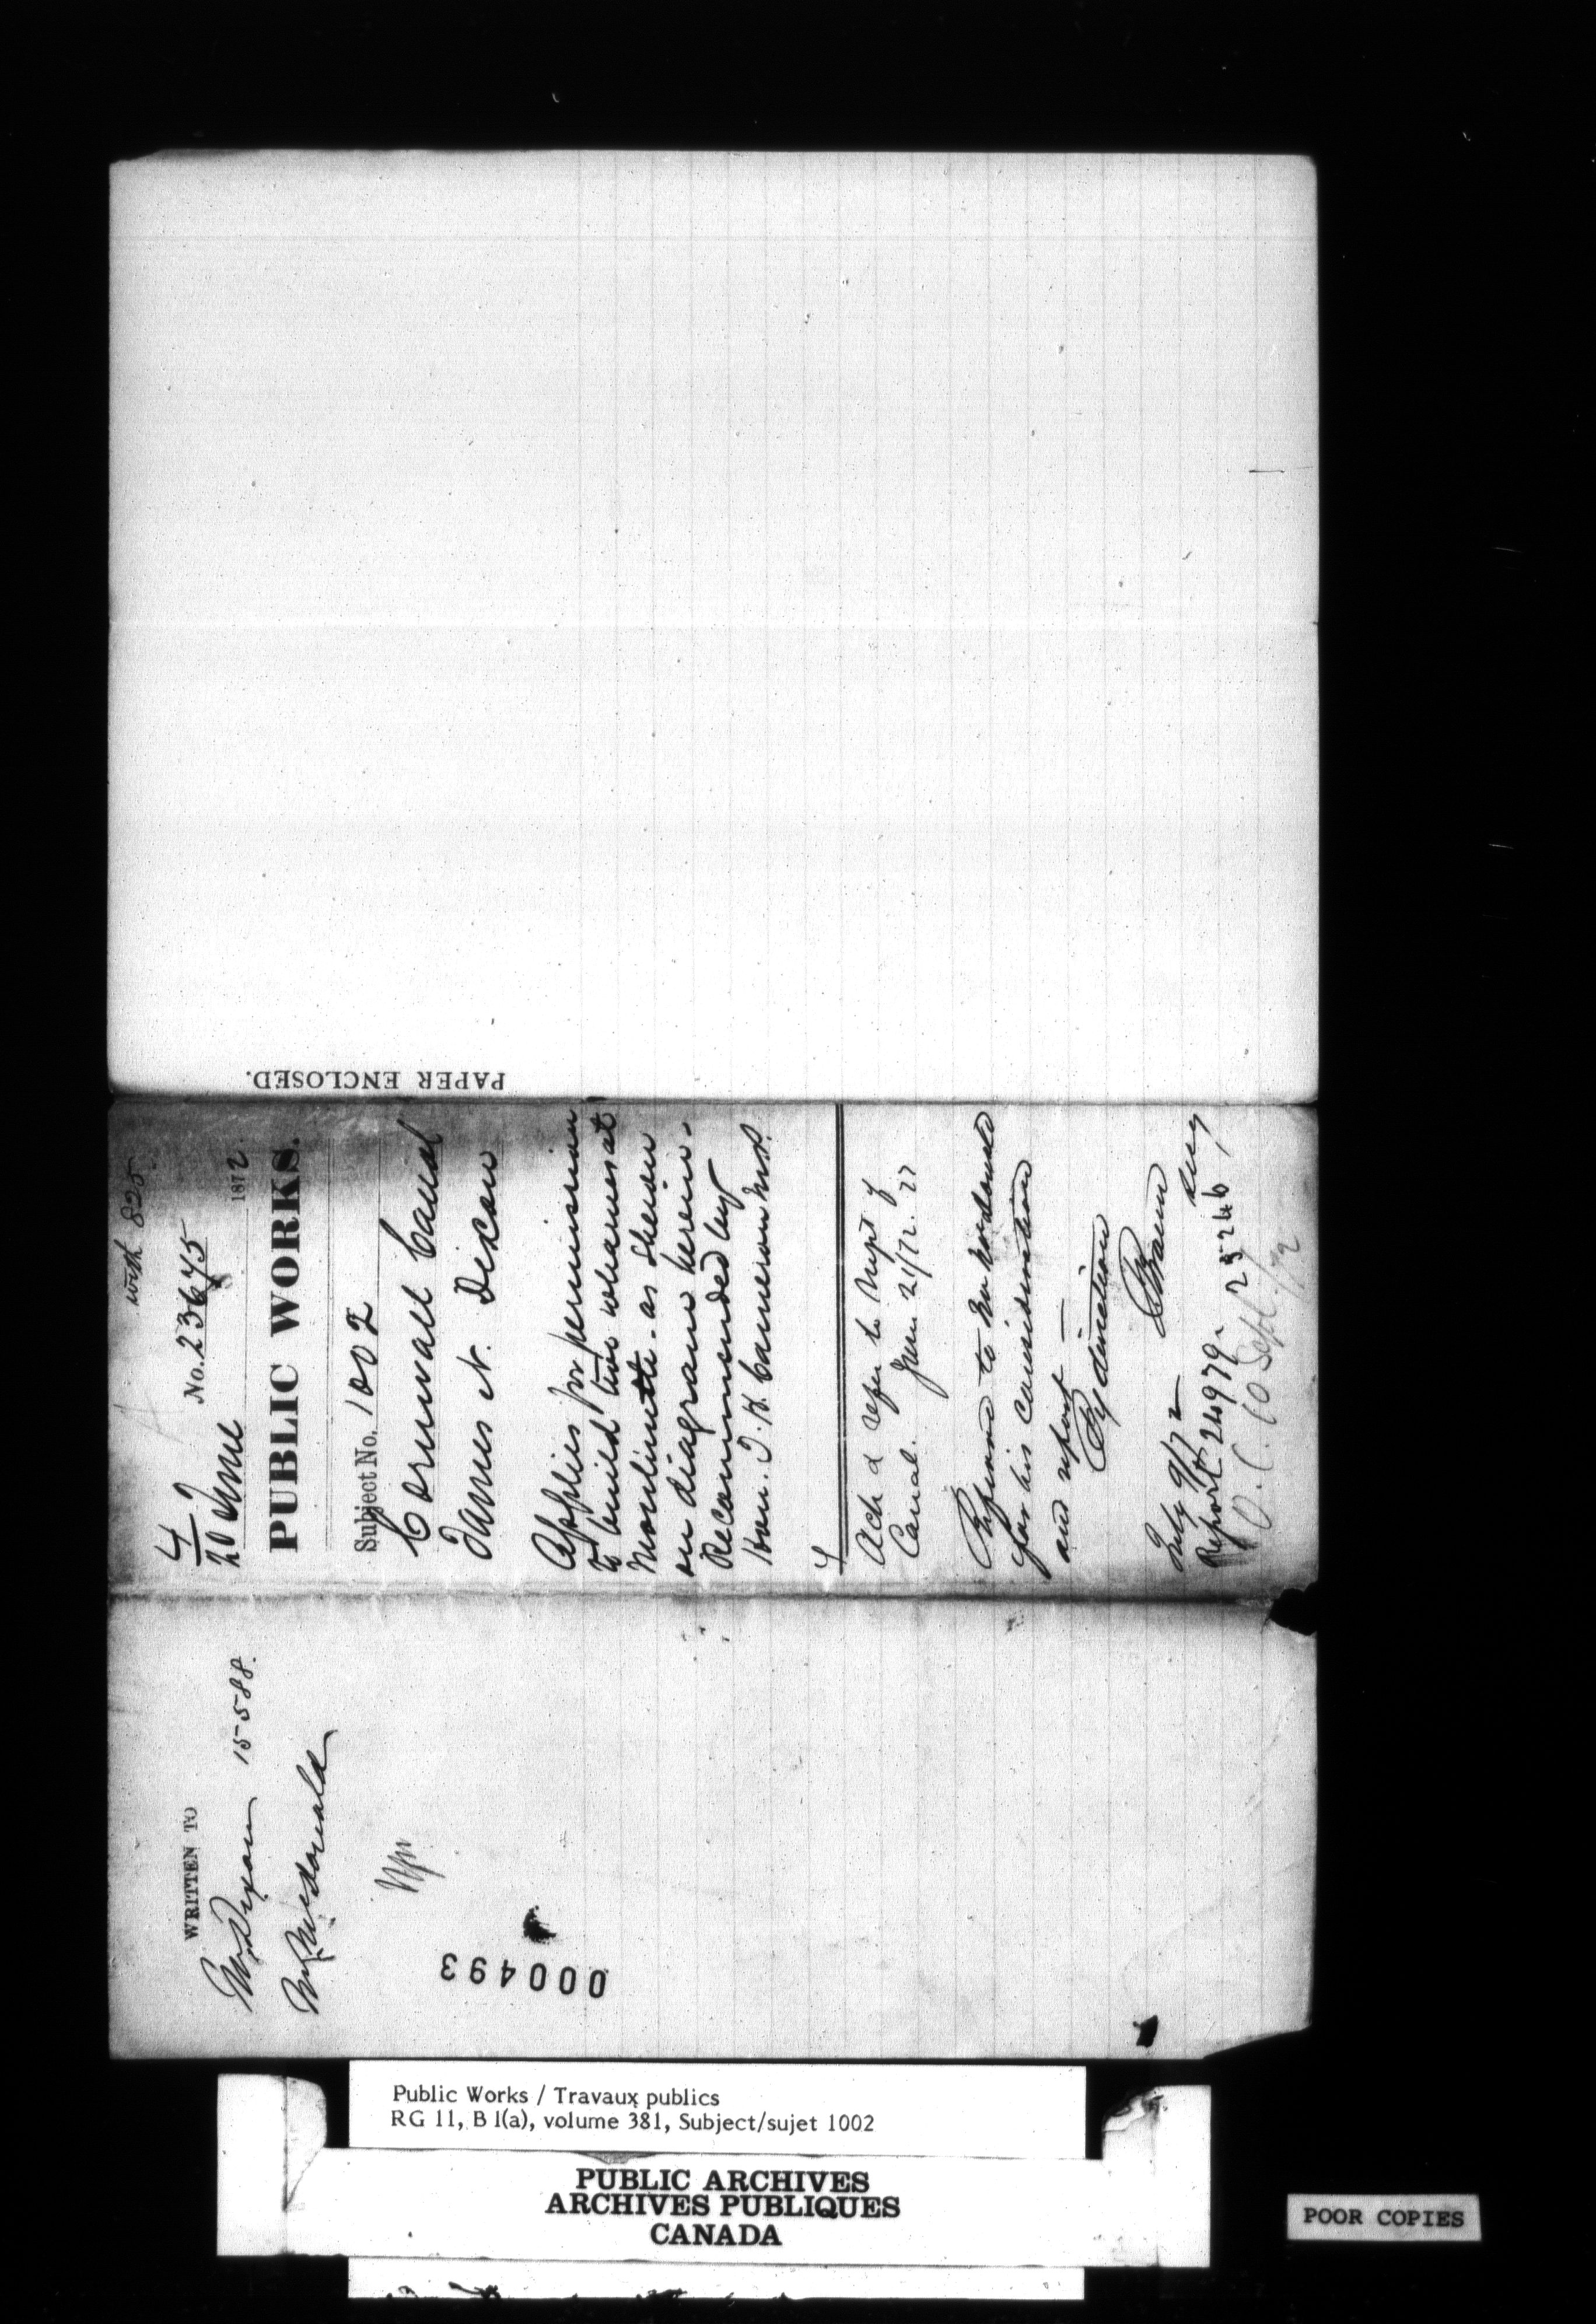 PAPER ENCLOSED.
with 825
4
No. 23645
20 June 1872.
PUBLIC WORKS.
Subject No. 1002
Cornwall Canal
James N. Dixon
Applies for permission
to build two wharves at
Moulinette - as shewn
on diagram herein -
Recommended by
Hon. J. H. Cameron M.P.
Ack & refer to Supt of
Canal. June 21/72.
Referred to Mr McDonald
for his consideration
and report —
By direction
Braun
Secy
July 9/72
Report 24979. 25246
O. C. 10 Sept/72
WRITTEN TO
Mr Dixon 15588.
Mr McDonald
000493
Public Works / Travaux publics
RG 11, B 1(a), volume 381, Subject/sujet 1002
PUBLIC ARCHIVES
ARCHIVES PUBLIQUES
CANADA
POOR COPIES